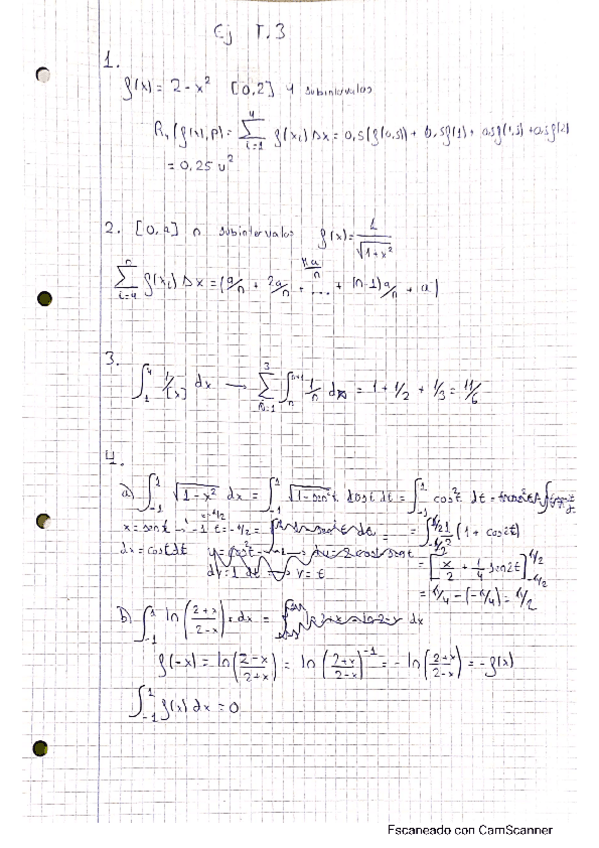 Ej T.3
1.
f(x) = 2 - x² [0,2] 4 subintervalos
R₄(f(x),P) = ∑_{i=1}^{4} f(x_i) Δx = 0,5(f(0,5)) + 0,5f(1) + 0,5f(1,5) + 0,5f(2)
= 0,25 u²
2. [0,a] n subintervalos f(x) = 1/√(1+x²)
f(x_i) Δx = (a/n + 2a/n + ... + (n-1)a/n + a)
3.
∫_1^4 1/[x] dx → ∑_{n=1}^{3} ∫_n^{n+1} 1/n dx = 1 + 1/2 + 1/3 = 11/6
4.
a) ∫_{-1}^{1} √(1-x²) dx = ∫_{-1}^{1} √(1-sen²t) cost dt = ∫_{-1}^{1} cos²t dt =
x = sent
(1 + cos2t)
dx = costdt
dv = 1 dt → v = t
= [x/2 + 1/4 sen2t]
b) ∫_{-1}^{1} ln((2+x)/(2-x)) dx =
f(-x) = ln((2-x)/(2+x)) = ln((2+x)/(2-x))^{-1} = -ln((2+x)/(2-x)) = -f(x)
∫_{-1}^{1} f(x) dx = 0
Escaneado con CamScanner